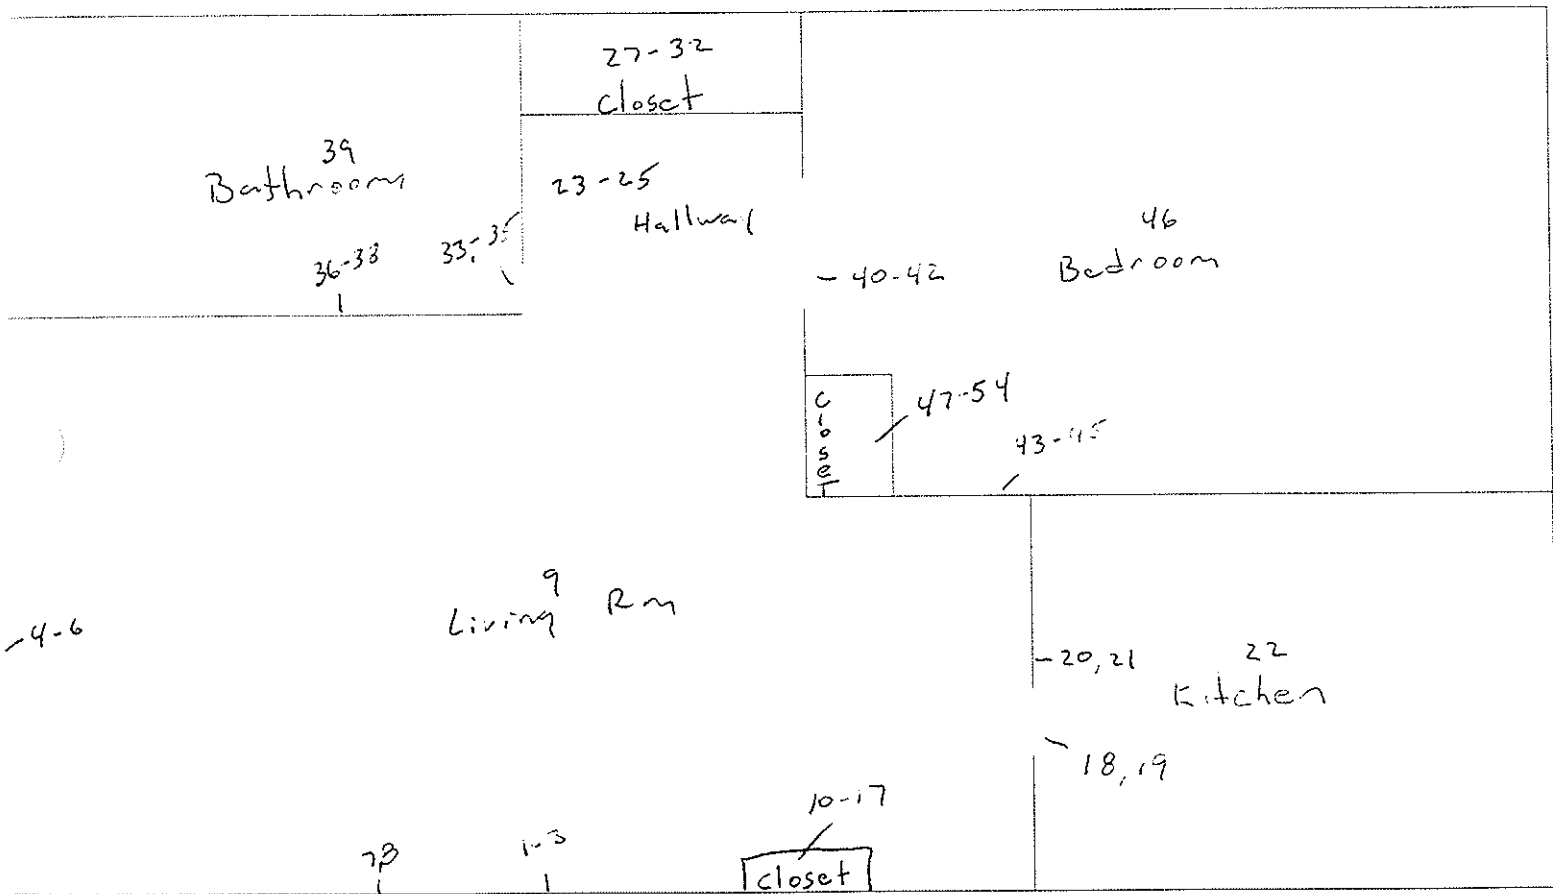 27-32
Closet
39
Bathroom
23-25
Hallway
36-38
33-35
46
Bedroom
40-42
Closet
47-54
43-45
9
Living Rm
4-6
20,21
22
Kitchen
18,19
10-17
7,8
1-3
closet